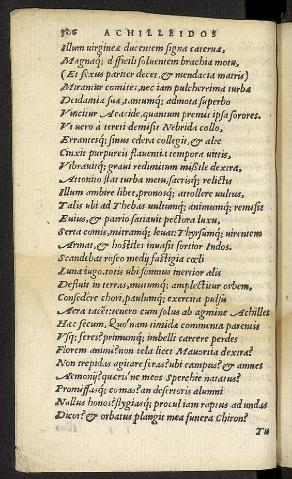 306 ACHILLEIDOS
Illum uirgineæ ducentem signa cateruæ,
Magnaq; difficili soluentem brachia motu,
(Et sexus pariter decet, & mendacia matris)
Mirantur comites, nec iam pulcherrima turbæ
Deidamia suæ, tantumq; admota superbo
Vincitur Aeacidæ, quantum premit ipsa sorores.
Vt uero à tereti demisit Nebrida collo,
Errantesq; sinus edera collegit, & alte
Cinxit purpureis flauentia tempora uittis,
Vibrauitq; graui redimitum missile dextra,
Attonito stat turba metu, sacrisq; relictis
Illum ambire libet, pronosq; attollere uultus,
Talis ubi ad Thebas uultumq; animumq; remisit
Euius, & patrio satiauit pectora luxu,
Serta comis, mitramq; leuat: Thyrsumq; uirentem
Armat, & hostiles inuasit fortior Indos.
Scandebat roseo medij fastigia cœli
Luna iugo. totis ubi somnus inertior alis
Defluit in terras, mutumq; amplectitur orbem,
Consedere chori, paulumq; exercita pulsu
Aera tacet: tenero cum solus ab agmine Achilles
Hæc secum, Quo nam timidæ commenta parentis
Vsq; feres? primumq; imbelli carcere perdes
Florem animi? non tela licet Mauortia dextra?
Non trepidas agitare feras? ubi campus? & amnes
Aemonij? queris' ne meos Sperchie natatus?
Promissasq; comas? an desertoris alumni
Nullus honos? stygiasq; procul iam raptus ad undas
Dicor? & orbatus plangit mea funera Chiron?
Tu